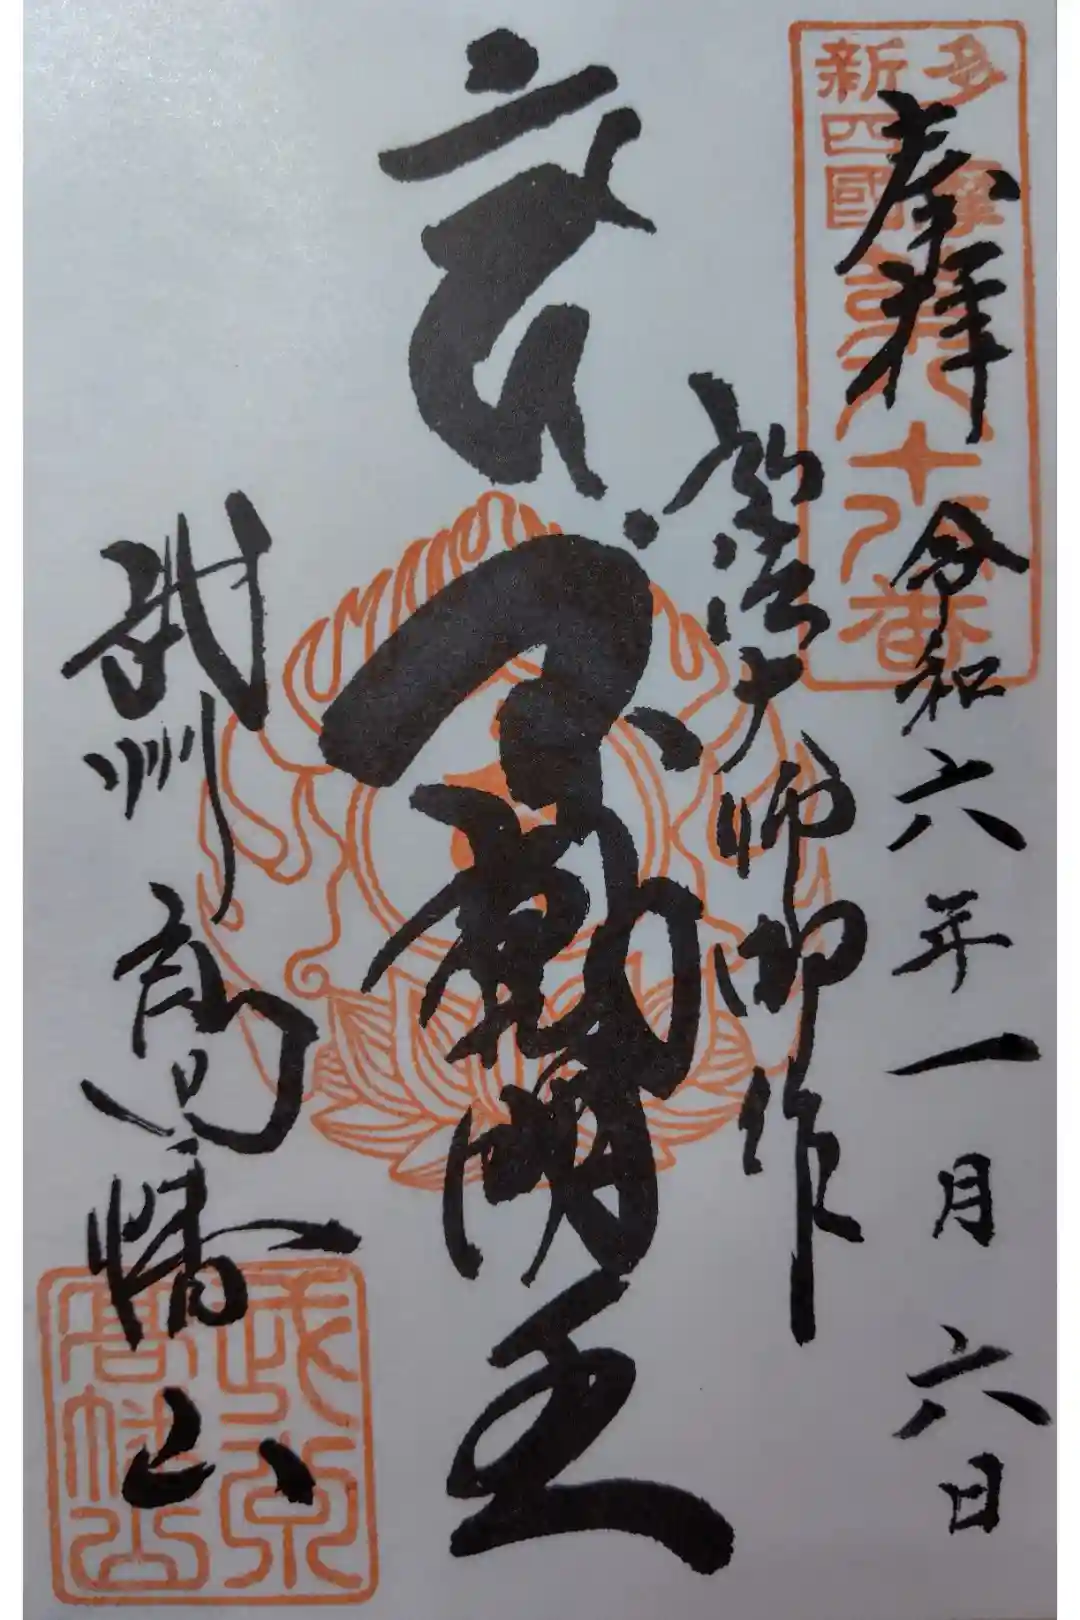 奉拝 令和六年一月六日
多摩
新四國
弘法大師御作
不動明王
武州 高幡山